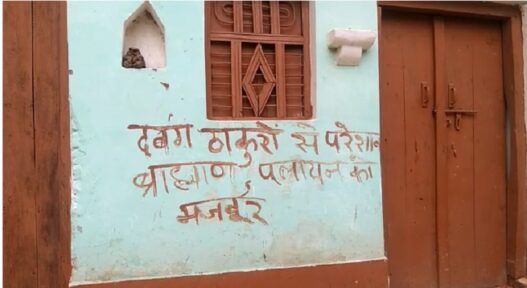 दबंग ठाकुरों से परेशान
ब्राह्मण पलायन को
मजबूर